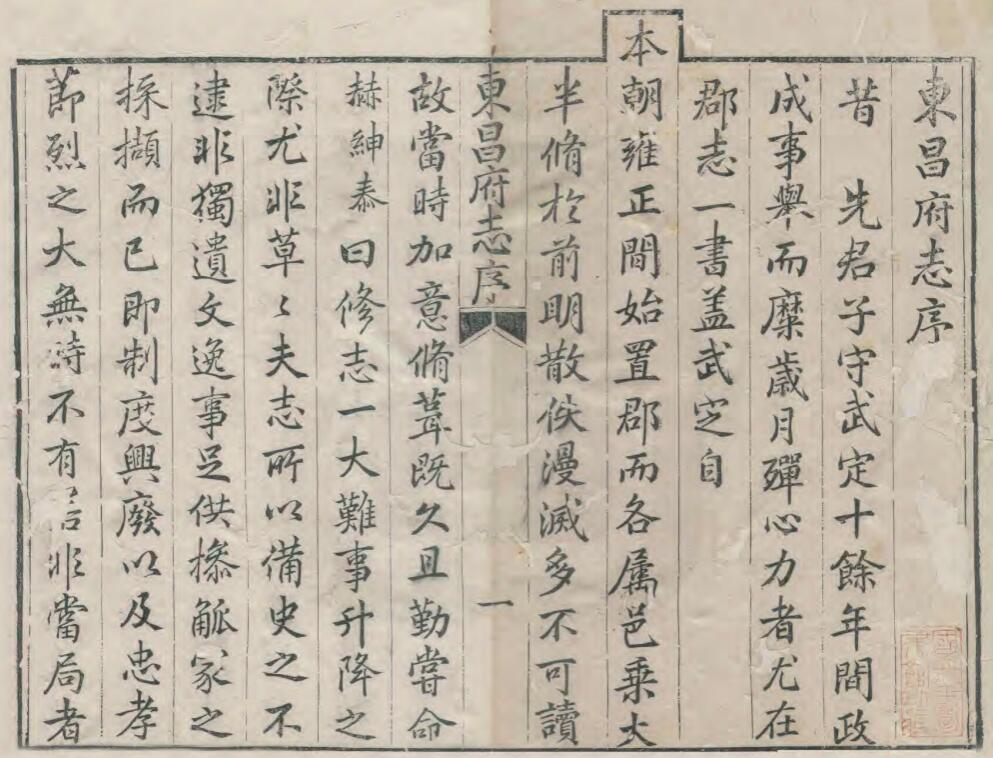 東昌府志序
昔 先君子守武定十餘年間政
成事舉而糜歲月殫心力者尤在
郡志一書盖武定自
本朝雍正間始置郡而各屬邑乘大
半脩於前明散佚漫滅多不可讀
東昌府志序 一
故當時加意脩葺既久且勤嘗命
赫紳泰曰修志一大難事升降之
際尤非草〻夫志所以備史之不
逮非獨遺文逸事足供搽觚家之
採擷而已即制度興廢以及忠孝
節烈之大無時不有 非當局者